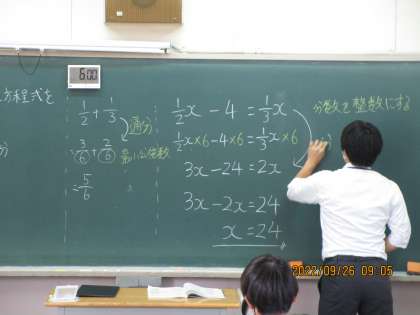 600
方程式を
1/2 + 1/3
通分
= 3/6 + 2/6
最小公倍数
= 5/6
1/2x - 4 = 1/3x
1/2x×6 - 4×6 = 1/3x×6
3x - 24 = 2x
3x - 2x = 24
x = 24
分数を整数にする
2022/09/26 09:05